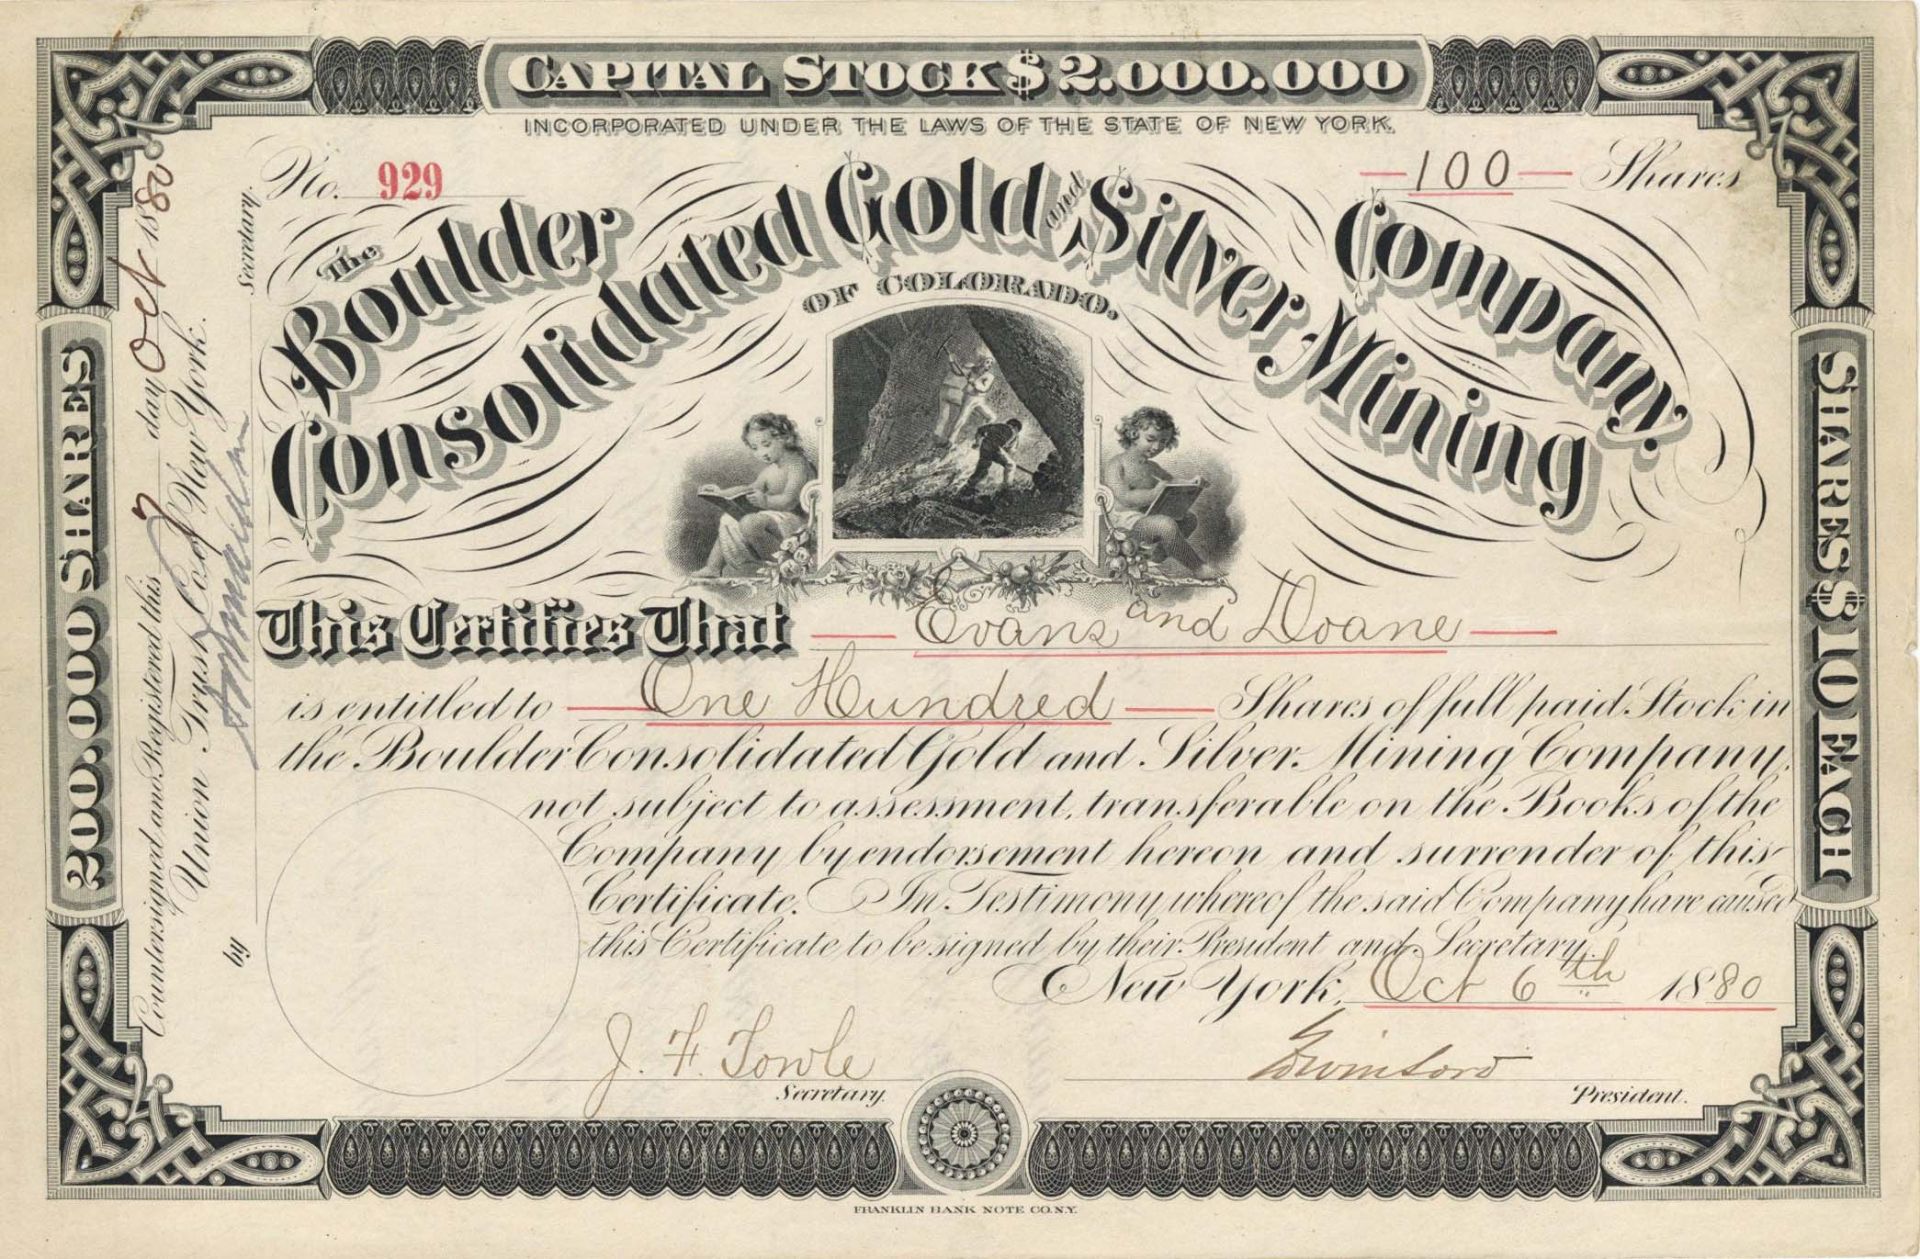 CAPITAL STOCK $2.000.000
INCORPORATED UNDER THE LAWS OF THE STATE OF NEW YORK.
No. 929
—100— Shares
The Boulder
Consolidated Gold and Silver Mining
Company.
OF COLORADO.
This Certifies That — Evans and Doane —
is entitled to — One Hundred — Shares of full paid Stock in
the Boulder Consolidated Gold and Silver Mining Company,
not subject to assessment, transferable on the Books of the
Company by endorsement hereon and surrender of this
Certificate. In Testimony whereof the said Company have caused
this Certificate to be signed by their President and Secretary.
New York, Oct 6th 1880
J. F. Towle
Secretary.
President.
FRANKLIN BANK NOTE CO. N.Y.
200.000 SHARES
SHARES $10 EACH
Countersigned and Registered this 7 day Oct 1880
Union Trust Co. of New York.
by
Secretary.